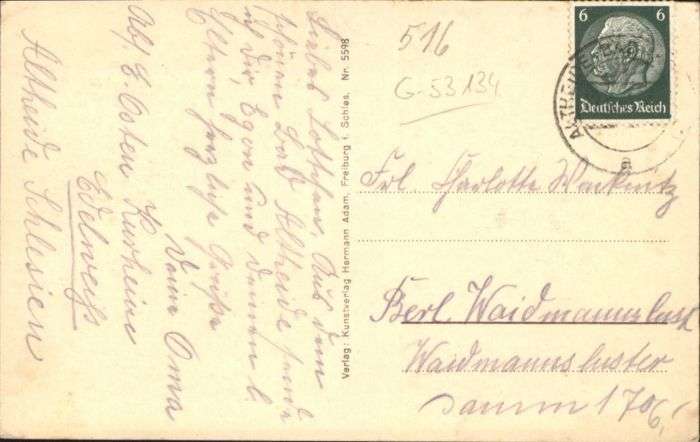 Liebes Lottchen. Aus dem
schönen Bad Altheide sende
ich Dir, Egon und Deinen l.
Eltern herzliche Grüße
Deine Oma
Abs. E. Osten Kurheim
Edelweiß
Altheide Schlesien
Verlag: Kunstverlag Hermann Adam, Freiburg i. Schles. Nr. 5598
516
G-53134
6 6
Deutsches Reich
ALTHEIDE
a
Frl. Charlotte Warknitz
Berl. Waidmannslust
Waidmannsluster
damm 170